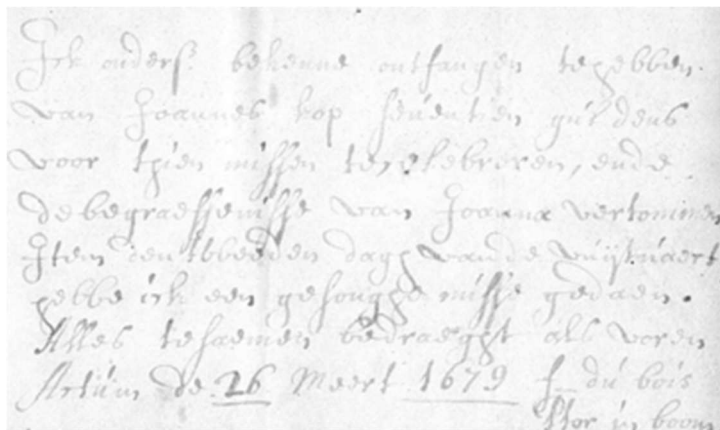 Ick onders. bekenne ontfangen te hebben
van Joannes kop seventien guldens
voor thien missen te celebreren, ende
de begraeffenisse van Joanna vertommen
Item den tweeden dagh vande vuijtvaert
hebbe ick een gesonghe misse gedaen.
Alles tesaemen bedraeght als voren
Actum de 26 Meert 1679 f. du bois
in boom